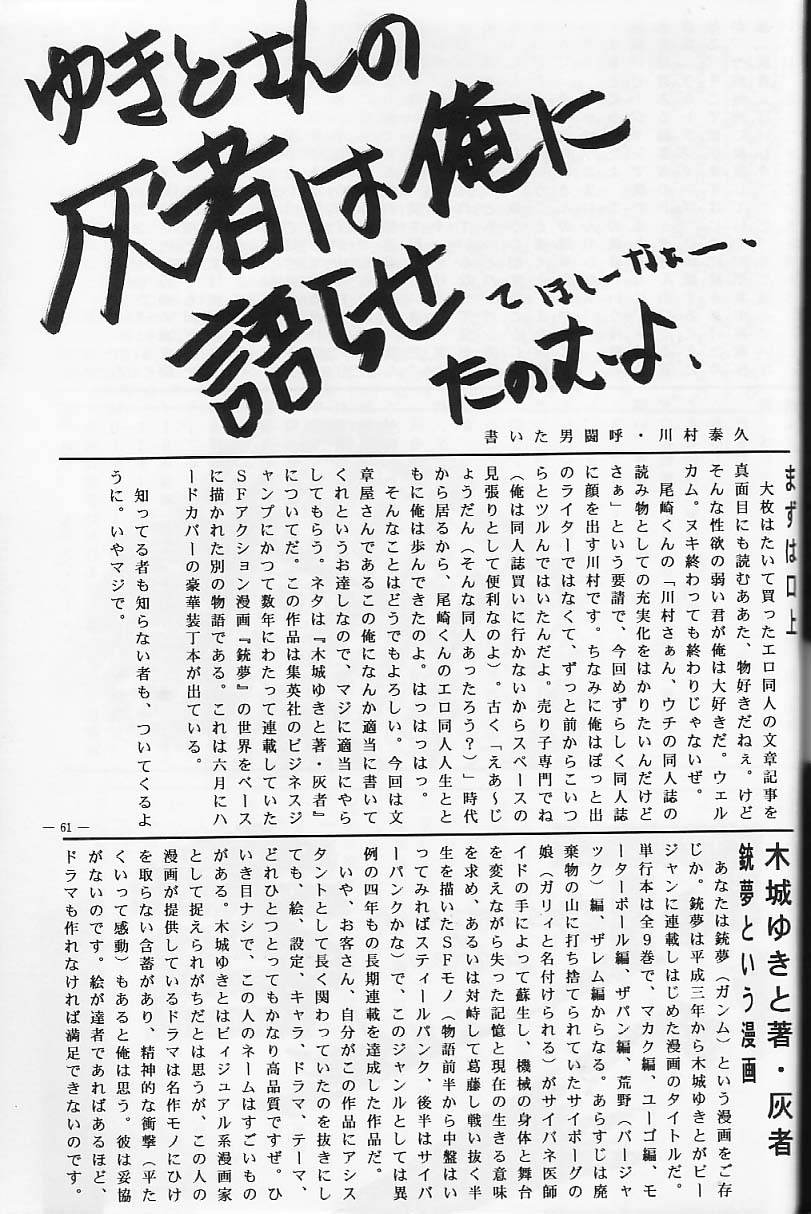 ゆきとさんの
灰者は俺に
語らせ
てほしーなぁー、
たのむーよ、
書いた男闘呼・川村泰久
まずは口上
大枚はたいて買ったエロ同人の文章記事を
真面目にも読むああた、物好きだねぇ。けど
そんな性欲の弱い君が俺は大好きだ。ウェル
カム。ヌキ終わっても終わりじゃないぜ。
尾崎くんの「川村さぁん、ウチの同人誌の
読み物としての充実化をはかりたいんだけど
さぁ」という要請で、今回めずらしく同人誌
に顔を出す川村です。ちなみに俺はぽっと出
のライターではなくて、ずっと前からこいつ
らとツルんではいたんだよ。売り子専門でね
(俺は同人誌買いに行かないからスペースの
見張りとして便利なのよ)。古く「えあ～じ
ょうだん(そんな同人あったろう?)」時代
から居るから、尾崎くんのエロ同人人生とと
もに俺は歩んできたのよ。はっはっはっ。
そんなことはどうでもよろしい。今回は文
章屋さんであるこの俺になんか適当に書いて
くれというお達しなので、マジに適当にやら
してもらう。ネタは『木城ゆきと著・灰者』
についてだ。この作品は集英社のビジネスジ
ャンプにかつて数年にわたって連載していた
SFアクション漫画『銃夢』の世界をベース
に描かれた別の物語である。これは六月にハ
ードカバーの豪華装丁本が出ている。
知ってる者も知らない者も、ついてくるよ
うに。いやマジで。
— 61 —
木城ゆきと著・灰者
銃夢という漫画
あなたは銃夢(ガンム)という漫画をご存
じか。銃夢は平成三年から木城ゆきとがビー
ジャンに連載しはじめた漫画のタイトルだ。
単行本は全9巻で、マカク編、ユーゴ編、モ
ーターボール編、ザパン編、荒野(バージャ
ック)編、ザレム編からなる。あらすじは廃
棄物の山に打ち捨てられていたサイボーグの
娘(ガリィと名付けられる)がサイバネ医師
イドの手によって蘇生し、機械の身体と舞台
を変えながら失った記憶と現在の生きる意味
を求め、あるいは対峙して葛藤し戦い抜く半
生を描いたSFモノ(物語前半から中盤はい
ってみればスティールパンク、後半はサイバ
ーパンクかな)で、このジャンルとしては異
例の四年もの長期連載を達成した作品だ。
いや、お客さん、自分がこの作品にアシス
タントとして長く関わっていたのを抜きにし
ても、絵、設定、キャラ、ドラマ、テーマ、
どれひとつとってもかなり高品質ですぜ。ひ
いき目ナシで、この人のネームはすごいもの
がある。木城ゆきとはビィジュアル系漫画家
として捉えられがちだとは思うが、この人の
漫画が提供しているドラマは名作モノにひけ
を取らない含蓄があり、精神的な衝撃(平た
くいって感動)もあると俺は思う。彼は妥協
がないのです。絵が達者であればあるほど、
ドラマも作れなければ満足できないのです。